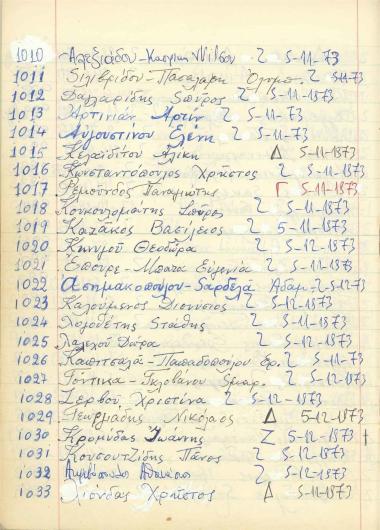 1010 Αλεξιάδου-Κασγκιν Νίτσου Ζ 5-11-73
1011 Σιλιβρίδου-Πασαλαρη Όλυμπ. Ζ 5-11-73
1012 Σαχπαρίδης Σπύρος Ζ 5-11-73
1013 Αρτινιάν Αρτίν Ζ 5-11-73
1014 Αυγουστίνου Ελένη Ζ 5-11-73
1015 Κελαϊδίτου Αλίκη Δ 5-11-1873
1016 Κωνσταντόπουλος Χρήστος Ζ 5-11-1873
1017 Ρεμούνδος Παναγιώτης Γ 5-11-1873
1018 Σπύρος Ζ 5-11-1873
1019 Καζάκος Βασίλειος Ζ 5-11-1873
1020 Κυνηγού Θεοδώρα Ζ 5-12-1873
1021 Ευγενία Ζ 5-12-1873
1022 Ασημακοπούλου-Σαρδελά Αδαμ. Ζ 5-12-73
1023 Καλούμενος Διονύσιος Ζ 5-12-1873
1024 Χολοθέτης Στάθης Ζ 5-12-1873
1025 Δώρα Ζ 5-12-1873
1026 Καπιτσαλά-Παπαδοπούλου Ερ. Ζ 5-12-1873
1027 Ζ 5-12-1873
1028 Ζερβού Χριστίνα Ζ 5-12-1873
1029 Γεωργιάδης Νικόλαος Δ 5-12-1873
1030 Κρομύδας Ιωάννης Ζ 5-12-1873 †
1031 Κουσουτζίδης Πάνος Ζ 5-12-1873
1032 Ζ 5-12-1873
1033 Χιόνδας Χρήστος Δ 5-11-1873